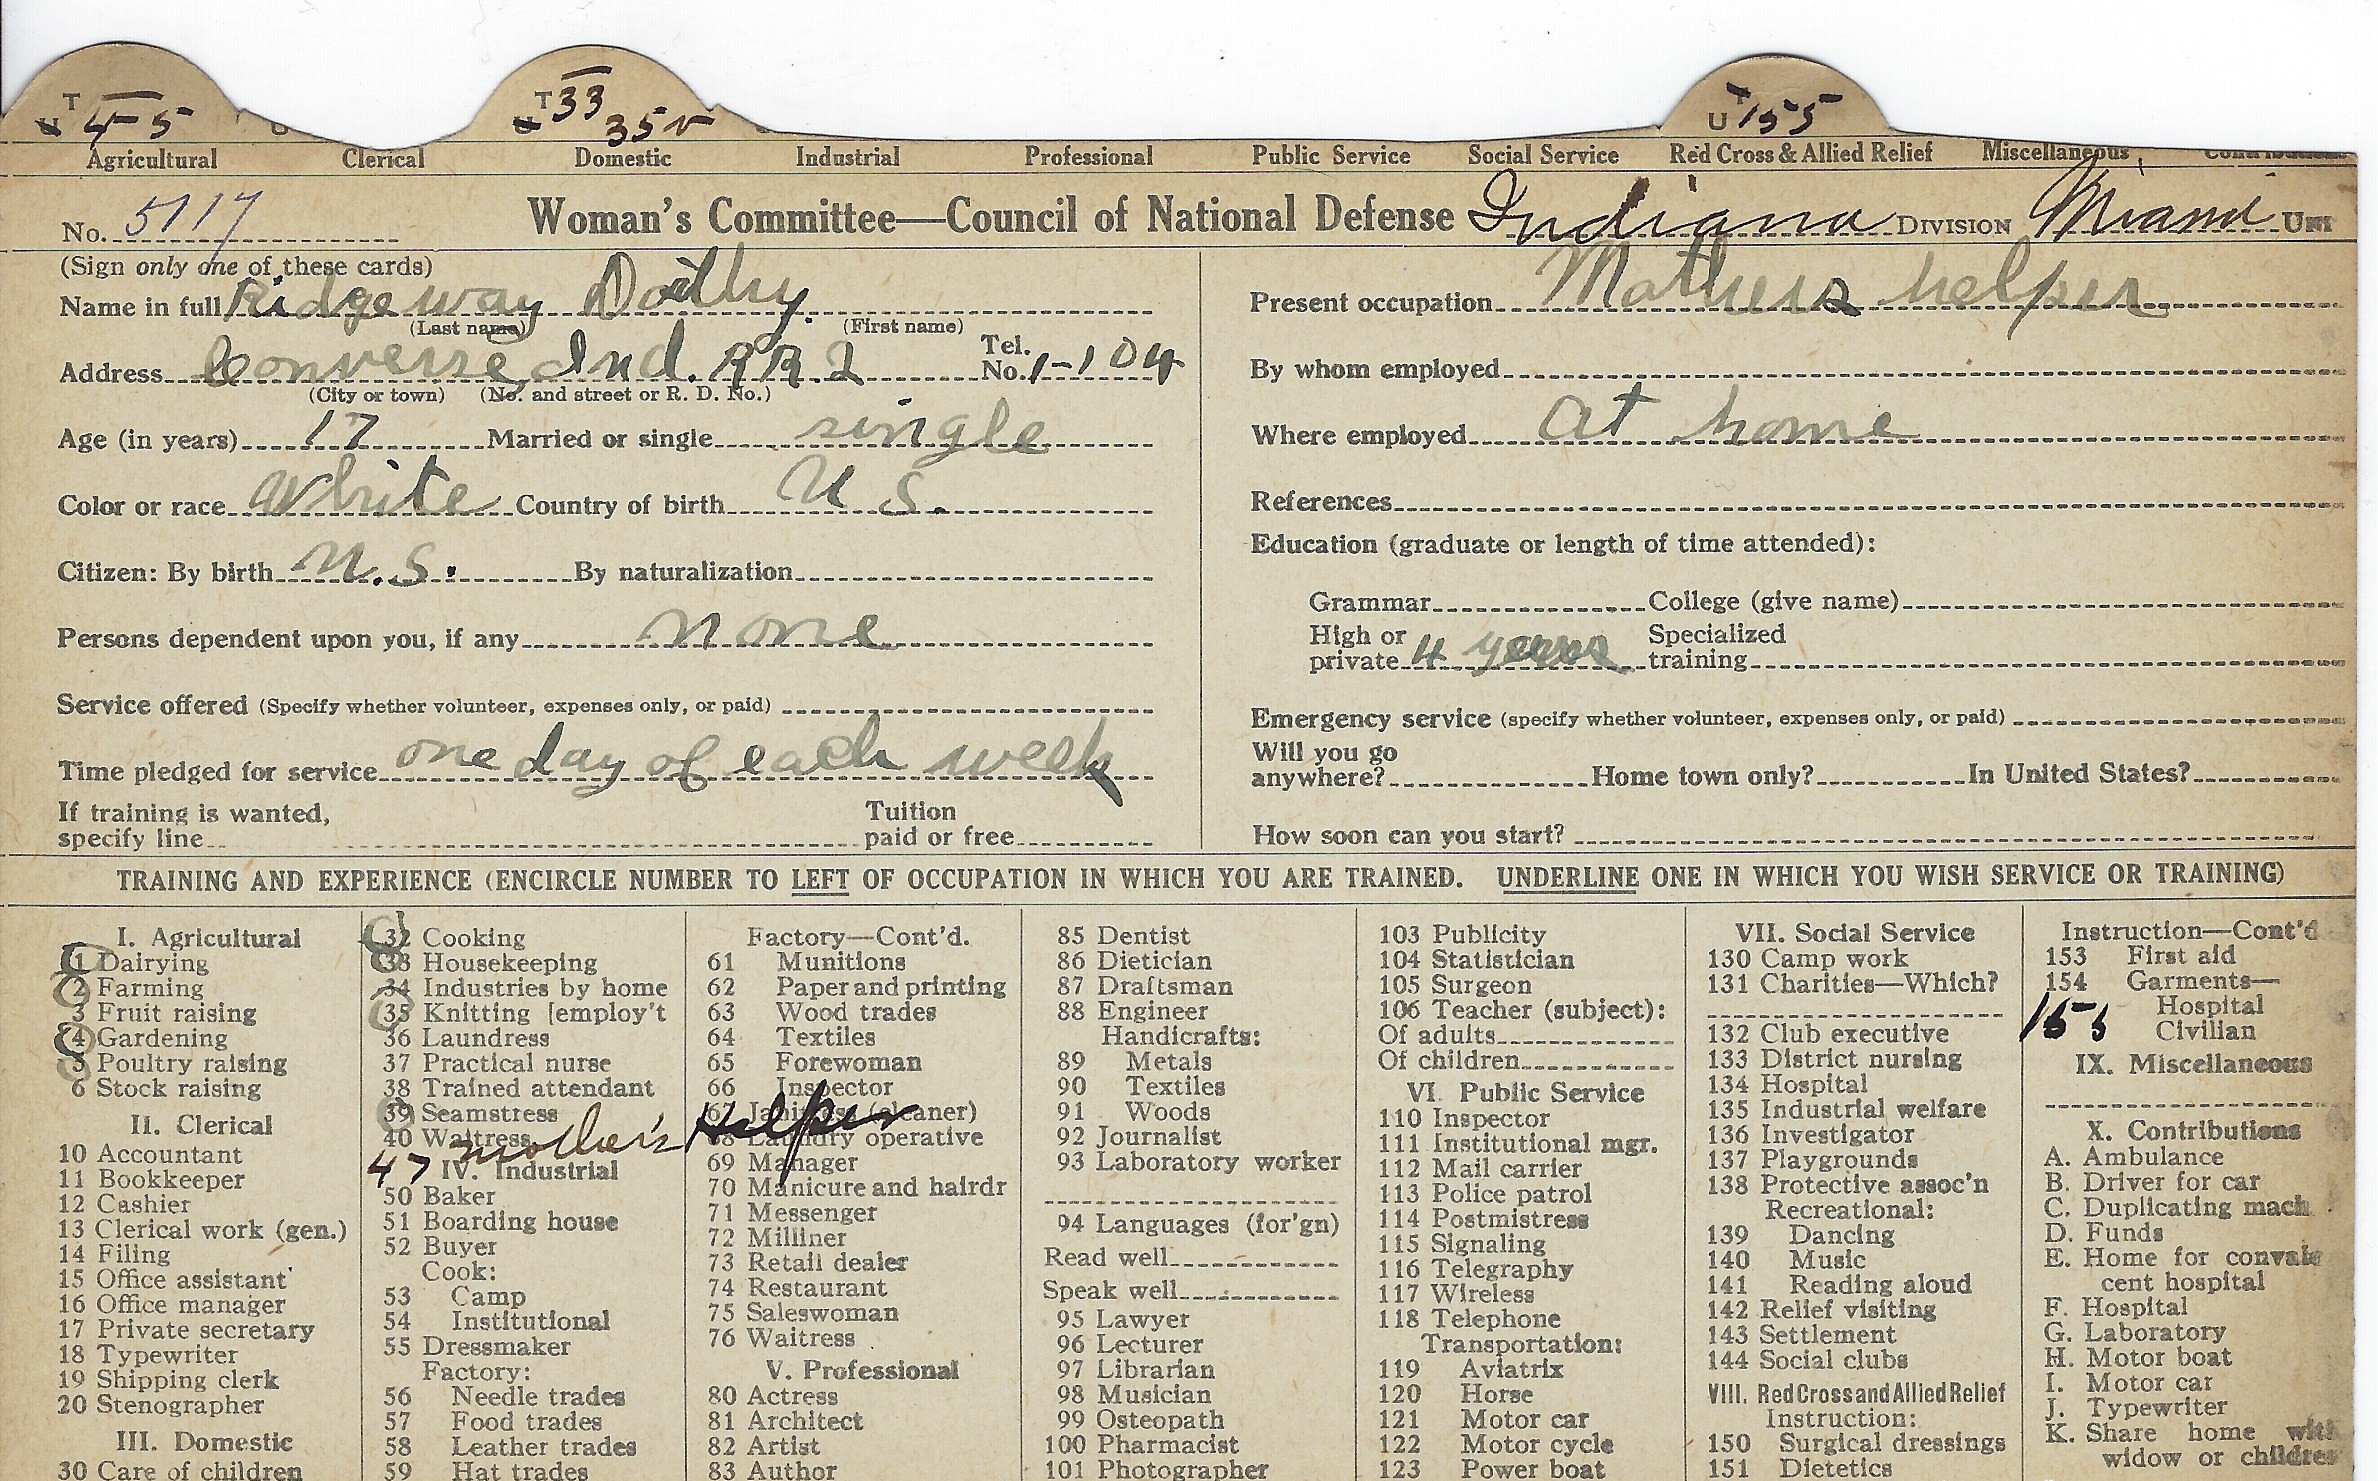 T 4-5 U T 33 35 U 155
Agricultural Clerical Domestic Industrial Professional Public Service Social Service Red Cross & Allied Relief Miscellaneous Contributions
No. 5117 Woman's Committee—Council of National Defense Indiana DIVISION Miami UNIT
(Sign only one of these cards)
Name in full Ridgeway Dothy
(Last name) (First name)
Address Converse Ind. RR. 2 Tel. No. 1-104
(City or town) (No. and street or R. D. No.)
Age (in years) 17 Married or single single
Color or race White Country of birth U S.
Citizen: By birth U.S. By naturalization
Persons dependent upon you, if any none
Service offered (Specify whether volunteer, expenses only, or paid)
Time pledged for service one day of each week
If training is wanted,
specify line Tuition
paid or free
Present occupation Mothers helper
By whom employed
Where employed at home
References
Education (graduate or length of time attended):
Grammar College (give name)
High or
private 4 years Specialized
training
Emergency service (specify whether volunteer, expenses only, or paid)
Will you go
anywhere? Home town only? In United States?
How soon can you start?
TRAINING AND EXPERIENCE (ENCIRCLE NUMBER TO LEFT OF OCCUPATION IN WHICH YOU ARE TRAINED. UNDERLINE ONE IN WHICH YOU WISH SERVICE OR TRAINING)
I. Agricultural
1 Dairying
2 Farming
3 Fruit raising
4 Gardening
5 Poultry raising
6 Stock raising
II. Clerical
10 Accountant
11 Bookkeeper
12 Cashier
13 Clerical work (gen.)
14 Filing
15 Office assistant
16 Office manager
17 Private secretary
18 Typewriter
19 Shipping clerk
20 Stenographer
III. Domestic
30 Care of children
32 Cooking
33 Housekeeping
34 Industries by home
35 Knitting [employ't
36 Laundress
37 Practical nurse
38 Trained attendant
39 Seamstress
40 Waitress
47 mother's Helper
IV. Industrial
50 Baker
51 Boarding house
52 Buyer
Cook:
53 Camp
54 Institutional
55 Dressmaker
Factory:
56 Needle trades
57 Food trades
58 Leather trades
59 Hat trades
Factory—Cont'd.
61 Munitions
62 Paper and printing
63 Wood trades
64 Textiles
65 Forewoman
66 Inspector
67 Janitress (cleaner)
68 Laundry operative
69 Manager
70 Manicure and hairdr
71 Messenger
72 Milliner
73 Retail dealer
74 Restaurant
75 Saleswoman
76 Waitress
V. Professional
80 Actress
81 Architect
82 Artist
83 Author
85 Dentist
86 Dietician
87 Draftsman
88 Engineer
Handicrafts:
89 Metals
90 Textiles
91 Woods
92 Journalist
93 Laboratory worker
94 Languages (for'gn)
Read well
Speak well
95 Lawyer
96 Lecturer
97 Librarian
98 Musician
99 Osteopath
100 Pharmacist
101 Photographer
103 Publicity
104 Statistician
105 Surgeon
106 Teacher (subject):
Of adults
Of children
VI. Public Service
110 Inspector
111 Institutional mgr.
112 Mail carrier
113 Police patrol
114 Postmistress
115 Signaling
116 Telegraphy
117 Wireless
118 Telephone
Transportation:
119 Aviatrix
120 Horse
121 Motor car
122 Motor cycle
123 Power boat
VII. Social Service
130 Camp work
131 Charities—Which?
132 Club executive
133 District nursing
134 Hospital
135 Industrial welfare
136 Investigator
137 Playgrounds
138 Protective assoc'n
Recreational:
139 Dancing
140 Music
141 Reading aloud
142 Relief visiting
143 Settlement
144 Social clubs
VIII. Red Cross and Allied Relief
Instruction:
150 Surgical dressings
151 Dietetics
Instruction—Cont'd
153 First aid
154 Garments—
Hospital
155 Civilian
IX. Miscellaneous
X. Contributions
A. Ambulance
B. Driver for car
C. Duplicating mach
D. Funds
E. Home for convale
cent hospital
F. Hospital
G. Laboratory
H. Motor boat
I. Motor car
J. Typewriter
K. Share home with
widow or children